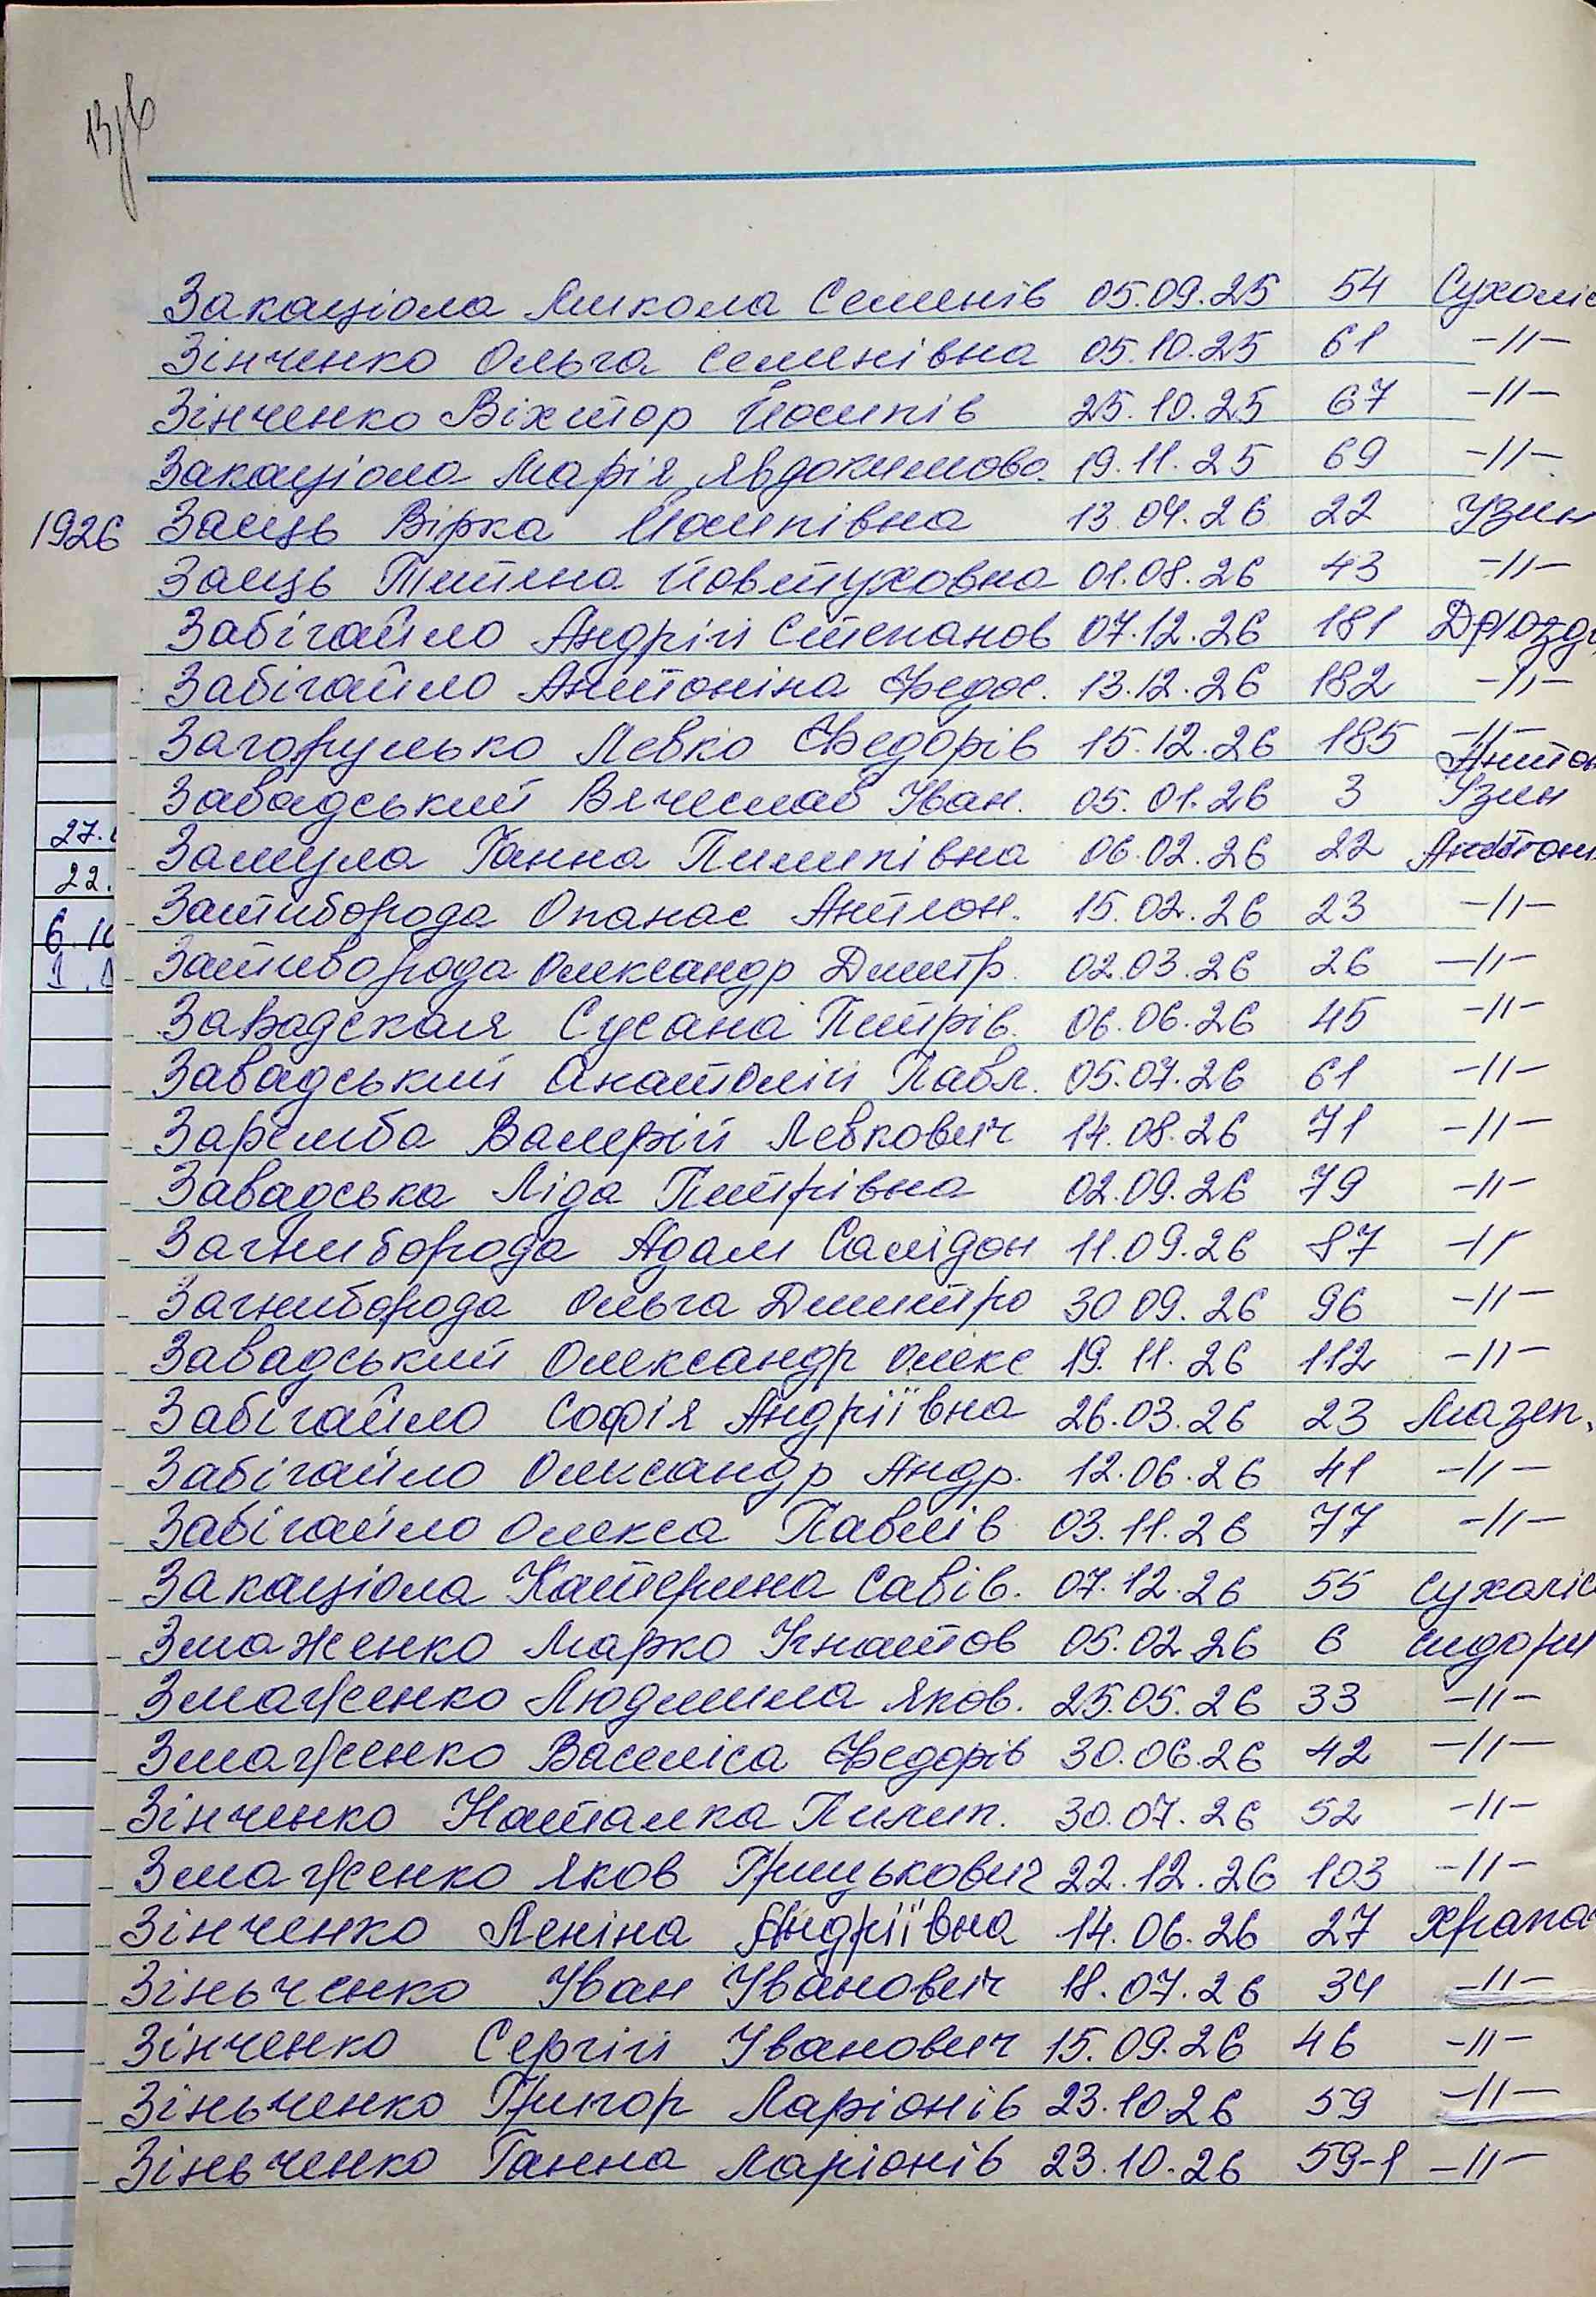 Закаціола Микола Семенів 05.09.25 54 Сухоліс
Зінченко Ольга Семенівна 05.10.25 61 -//-
Зінченко Віхтор Йосипів 25.10.25 67 -//-
Закаціола Марія Явдокимово. 19.11.25 69 -//-
1926 Заєць Вірка Йосипівна 13.04.26 22 Узин
Заєць Тетяна Йовтуховна 01.08.26 43 -//-
Забігайло Андрій Степанов 07.12.26 181 Дрозд
Забігайло Антоніна Федос. 13.12.26 182 -//-
Загорулько Левко Федорів 15.12.26 185 -//-
Антон
Завадський Вячеслав Іван. 05.01.26 3 Узин
Замула Ганна Пилипівна 06.02.26 22 Антон
Загниборода Опанас Антон. 15.02.26 23 -//-
Загниборода Олександр Дмитр. 02.03.26 26 -//-
Завадская Сусана Питрів. 06.06.26 45 -//-
Завадський Анатолій Павл. 05.07.26 61 -//-
Заремба Валерій Левкович 14.08.26 71 -//-
Завадська Ліда Питрівна 02.09.26 79 -//-
Загниборода Адам Самідон 11.09.26 87 -//-
Загниборода Ольга Дмитро 30.09.26 96 -//-
Завадський Олександр Олекс 19.11.26 112 -//-
Забігайло Софія Андріївна 26.03.26 23 Мазеп.
Забігайло Олександр Андр. 12.06.26 41 -//-
Забігайло Олекса Павлів 03.11.26 77 -//-
Закаціола Катерина Савів. 07.12.26 55 Сухоліс
Змаженко Марко Ігнатов 05.02.26 6 Сидори
Змаженко Людмила Яков. 25.05.26 33 -//-
Змаженко Василіса Федорів 30.06.26 42 -//-
Зінченко Наталка Пилип. 30.07.26 52 -//-
Змаженко Яков Грицькович 22.12.26 103 -//-
Зінченко Леніна Андріївна 14.06.26 27 Храпа
Зіньченко Іван Іванович 18.07.26 34 -//-
Зінченко Сергій Іванович 15.09.26 46 -//-
Зіньченко Григор Ларіонів 23.10.26 59 -//-
Зіньченко Ганна Ларіонів 23.10.26 59-1 -//-
27.
22.
6.10